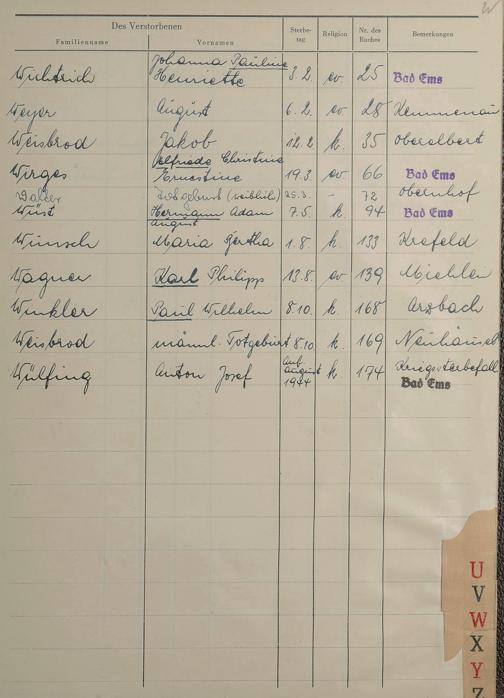 W
Des Verstorbenen Sterbe-tag Religion Nr. des Buches Bemerkungen
Familienname Vornamen
Johanna Pauline
Wichtrich Henriette 3.2. ev. 25 Bad Ems
Weyer August 6.2. ev. 28 Kemmenau
Weisbrod Jakob 12.2. k. 35 Oberelbert
Elfriede Christine
Wirges Ernestine 19.3. ev 66 Bad Ems
Totgeburt (weiblich) 25.3. - 72 Obernhof
Wüst Hermann Adam 7.5. k. 94 Bad Ems
August
Wünsch Maria Gertha 1.8. k. 133 Krefeld
Wagner Karl Philipp 13.8. ev 139 Miehlen
Winkler Paul Wilhelm 8.10. k. 168 Arzbach
Weisbrod männl. Totgeburt 8.10. k. 169 Neuhäusel
Wülfing Anton Josef Anf. August 1944 k. 174 Kriegssterbefall
Bad Ems
U
V
W
X
Y
Z